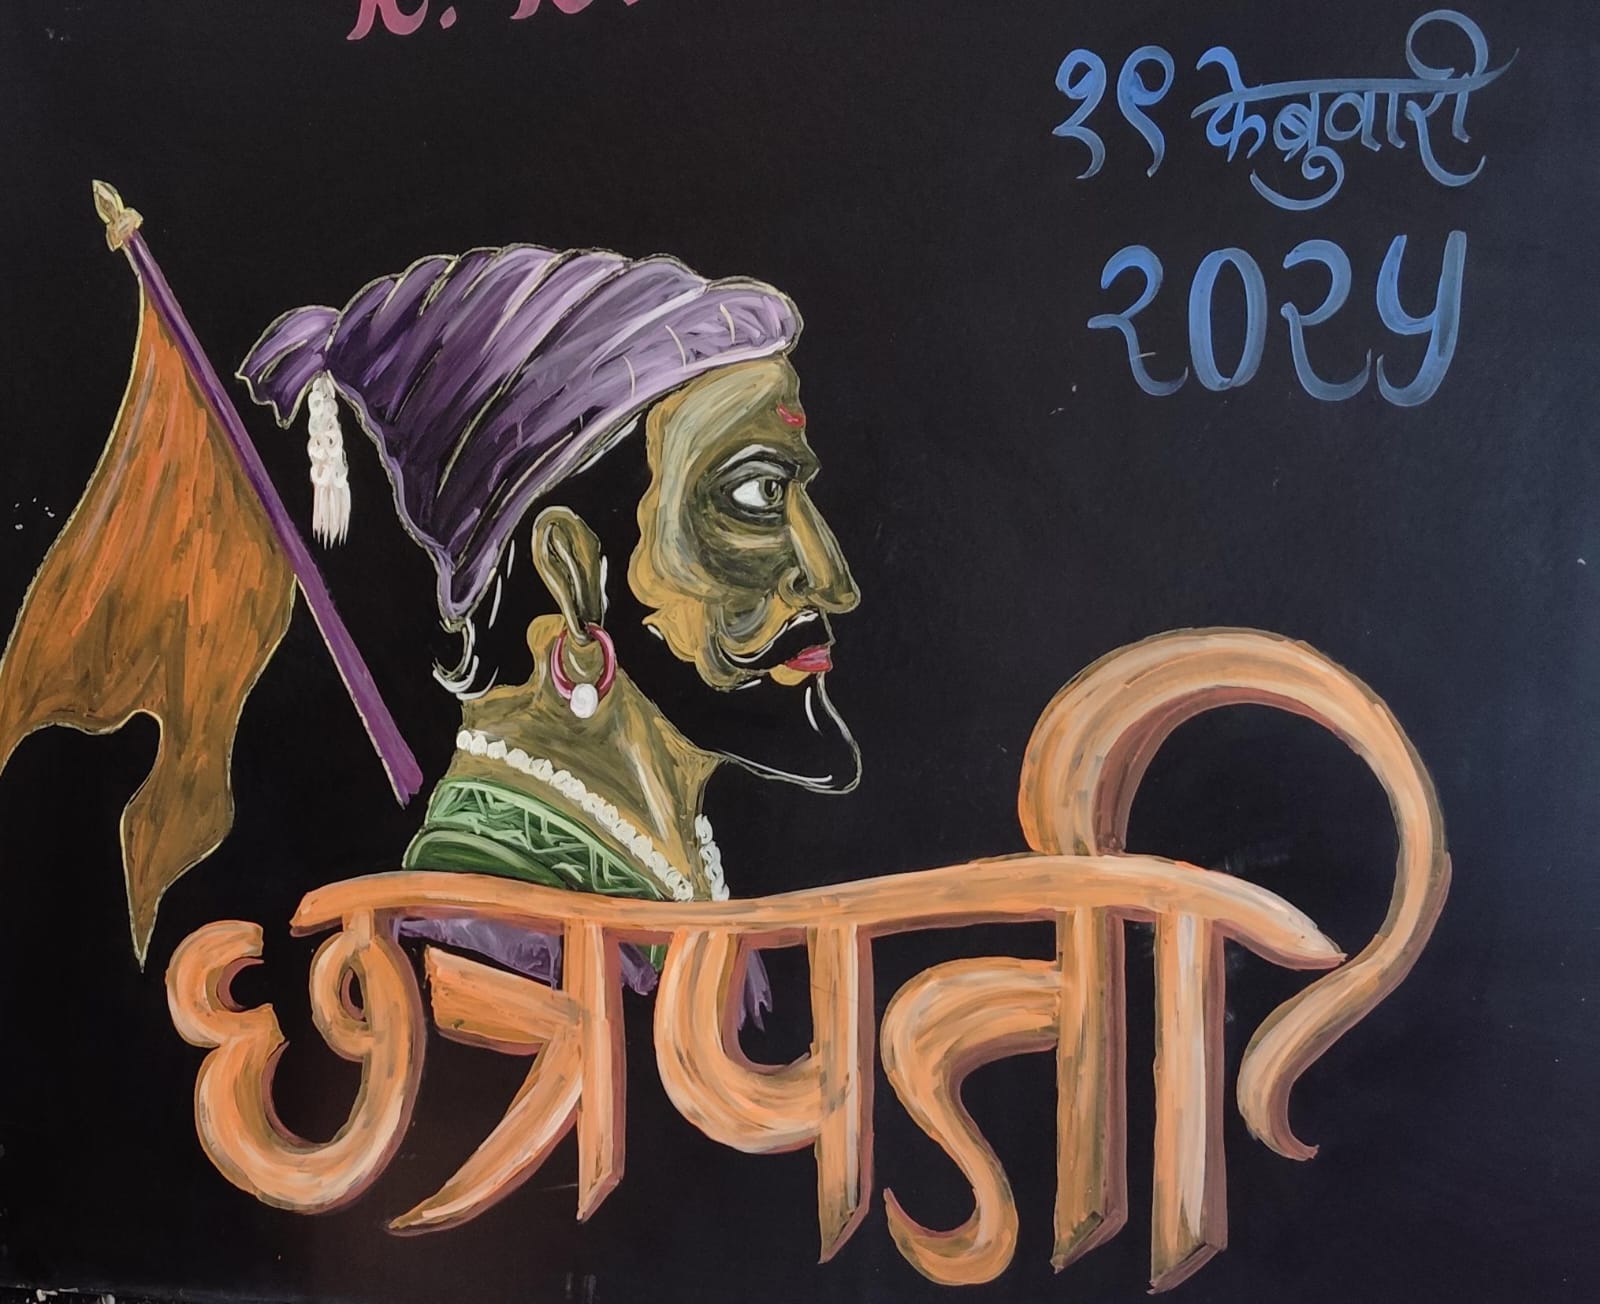 १९ फेब्रुवारी
२०२५
छत्रपती